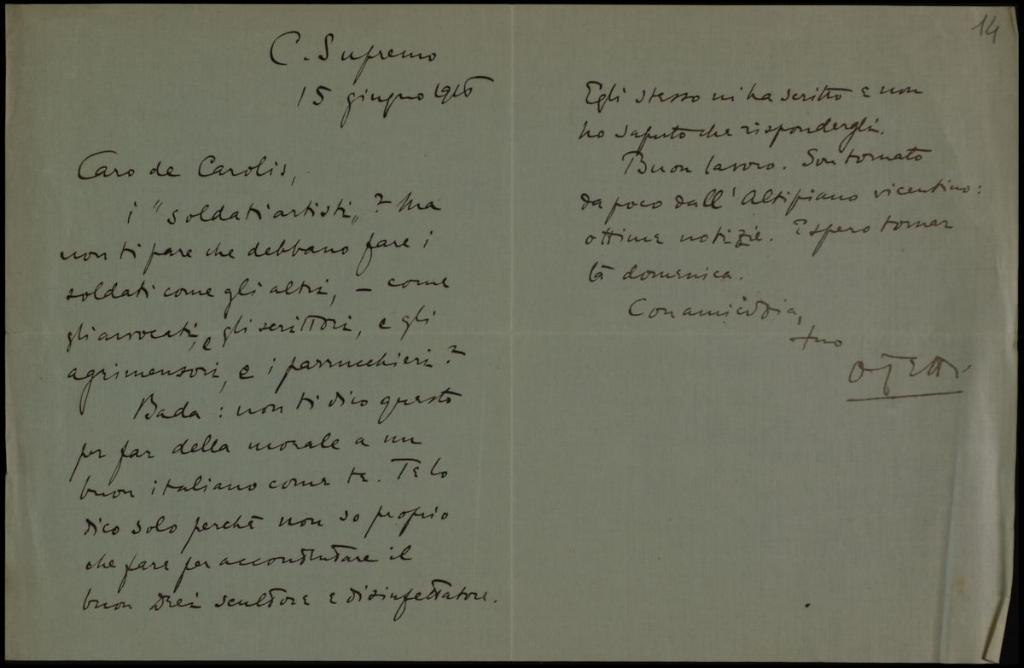 14
C. Supremo
15 giugno 1916
Caro de Carolis,
i "soldati artisti"? Ma
non ti pare che debbano fare i
soldati come gli altri, – come
gli avvocati, e gli scrittori, e gli
agrimensori, e i parrucchieri?
Bada: non ti dico questo
per far della morale a un
buon italiano come te. Te lo
dico solo perchè non so proprio
che fare per accontentare il
buon Drei scultore e disinfettatore.
Egli stesso mi ha scritto e non
ho saputo che rispondergli.
Buon lavoro. Son tornato
da poco dall'Altipiano vicentino:
ottime notizie. E spero tornar
là domenica.
Con amicizia,
tuo
Ojetti